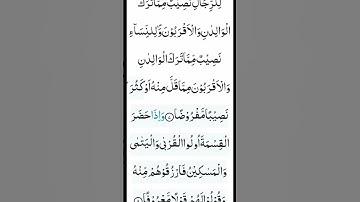 لِلرِّجَالِ نَصِيْبٌ مِّمَّا تَرَكَ
الْوَالِدٰنِ وَالْاَقْرَبُوْنَ وَلِلنِّسَآءِ
نَصِيْبٌ مِّمَّا تَرَكَ الْوَالِدٰنِ
وَالْاَقْرَبُوْنَ مِمَّا قَلَّ مِنْهُ اَوْ كَثُرَ ؕ
نَصِيْبًا مَّفْرُوْضًا ﴿۷﴾ وَاِذَا حَضَرَ
الْقِسْمَةَ اُولُوا الْقُرْبٰى وَالْيَتٰمٰى
وَالْمَسٰكِيْنُ فَارْزُقُوْهُمْ مِّنْهُ
وَقُوْلُوْا لَهُمْ قَوْلًا مَّعْرُوْفًا ﴿۸﴾